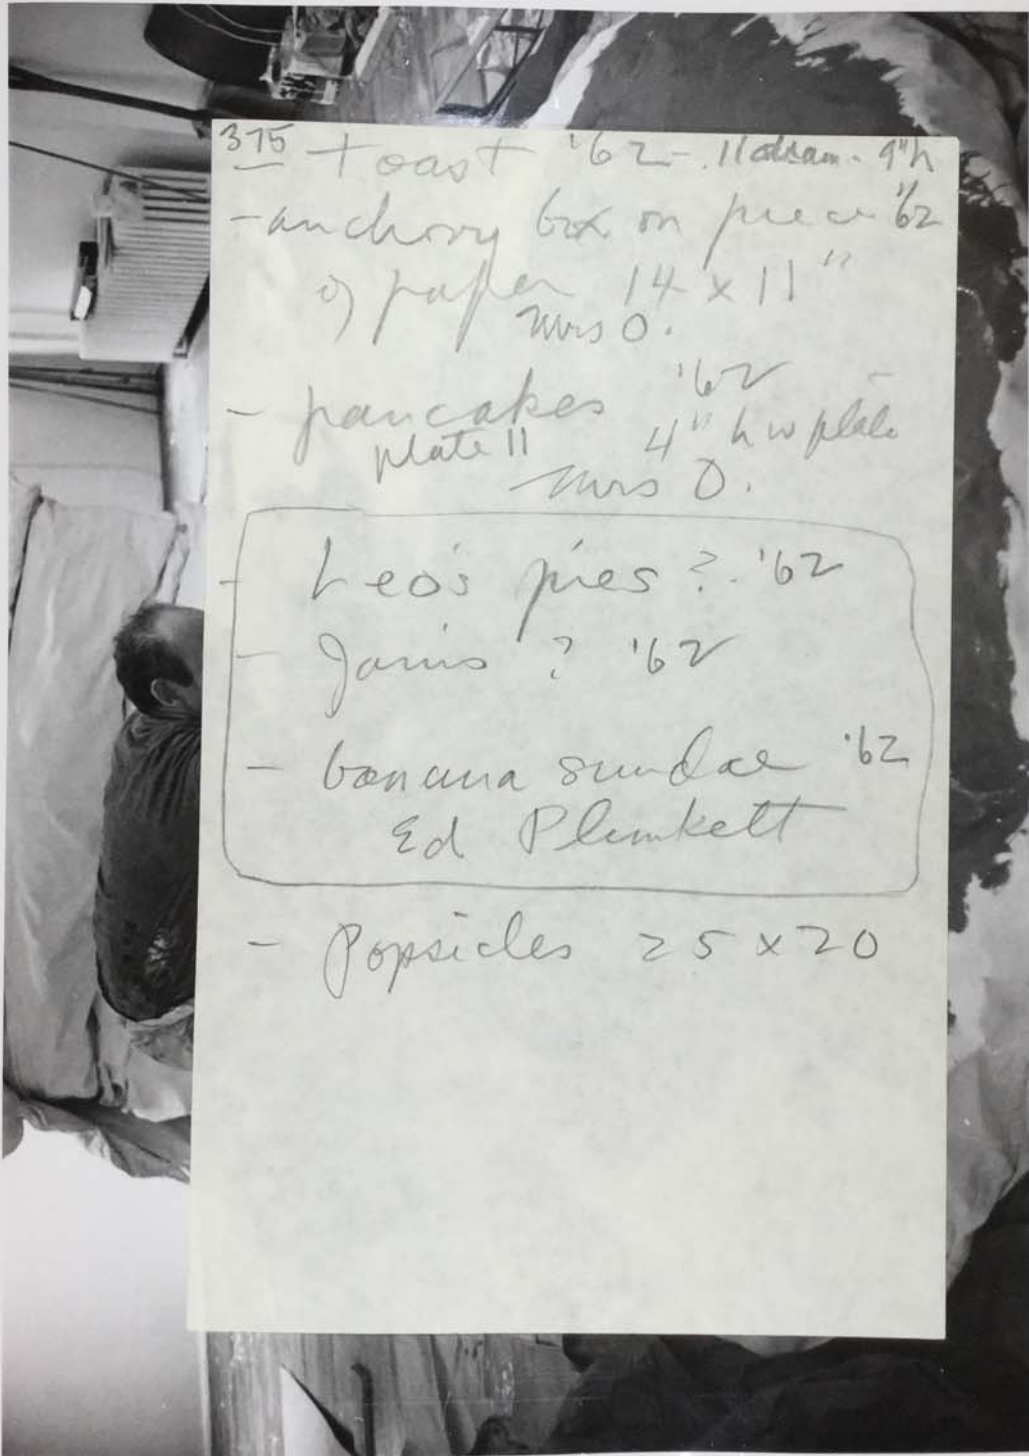 375 toast '62 - 11 diam - 9"h
- anchovy box on piece '62
of paper 14 x 11"
Mrs O.
- pancakes '62 -
plate 11 4" h w plate
Mrs O.
- Leo's pies ? '62
- Janis ? '62
- banana sundae '62
Ed Plunkett
- Popsicles 25 x 20